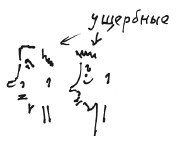 ущербные